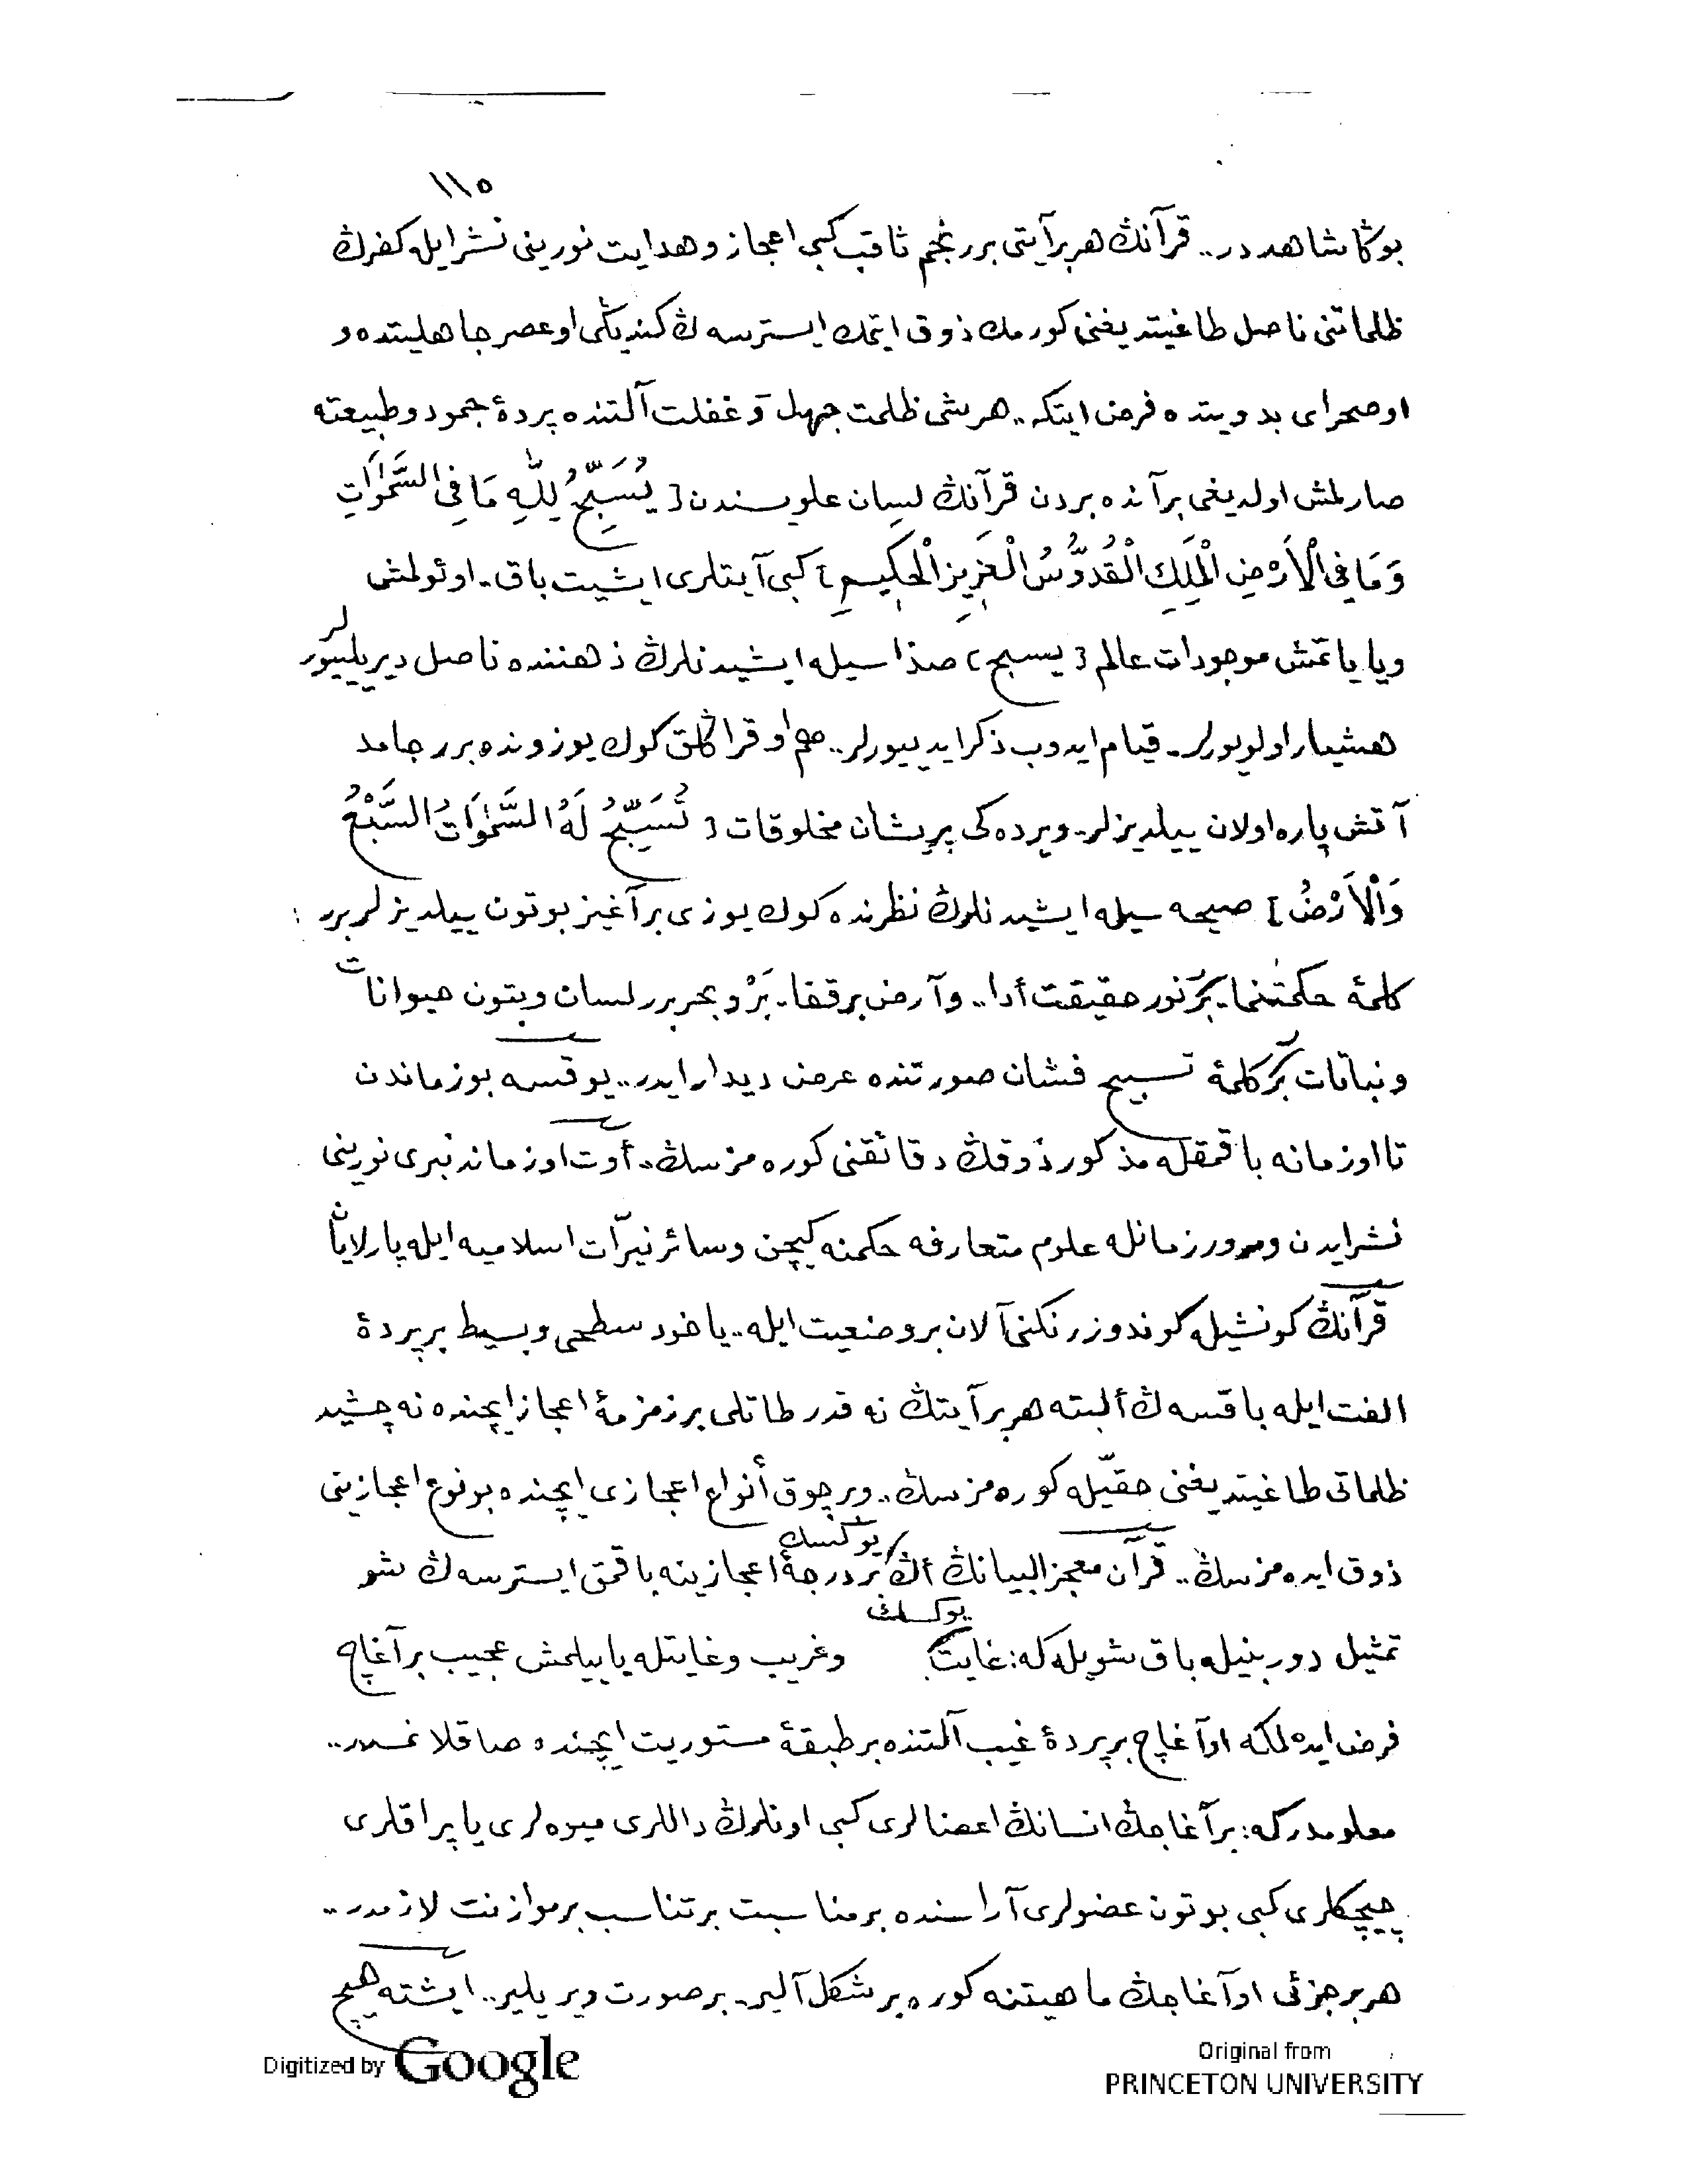 ١١٥
بوڭا شاهددر.. قرآنڭ هر برآيتى برر نجم ثاقب كبى اعجاز و هدايت نورينى نشر ايله كفرڭ
ظلماتنى ناصل طاغيتديغنى كورمك ذوق ايتمك ايسترسه ڭ كنديڭى او عصر جاهليتده و
او صحراى بدويتده فرض ايتكه.. هر شى ظلمت جهل و غفلت آلتنده پردهٔ جمود و طبيعته
صارلمش اولديغى برآنده بردن قرآنڭ لسان علويسندن [ يُسَبِّحُ لِلّٰهِ مَا فِى السَّمٰوَاتِ
وَمَا فِى الْاَرْضِ الْمَلِكِ الْقُدُّوسُ الْعَزِيزِ الْحَكِيمِ ] كبى آيتلرى ايشيت باق. اوئولمش
ويا ياتمش موجودات عالم [ يسبح ] صداسيله ايشيدنلرڭ ذهننده ناصل ديريلييورلر
هشيار اولويورلر. قيام ايدوب ذكر ايدييورلر.. هم او قراڭلق كوك يوزونده برر جامد
آتش پاره اولان ييلديزلر. ويرده كى پريشان مخلوقات [ تُسَبِّحُ لَهُ السَّمٰوَاتُ السَّبْعُ
وَالْاَرْضُ ] صيحه سيله ايشيدنلرڭ نظرنده كوك يوزى برآغيز بوتون ييلديزلر برر
كلمهٔ حكمتنما. برر نور حقيقت أدا.. و آرض برقفا. بَرْ و بحر برر لسان و بتون حيوانات
و نباتات برر كلمهٔ تسبيح فشان صورتنده عرض ديدار ايدر.. يوقسه بوزماندن
تا اوزمانه باقمقله مذكور ذوقڭ دقائقنى كوره مزسڭ. أوت اوزماندنبرى نورينى
نشرايدن و مرور زمانله علوم متعارفه حكمنه كچن و سائر نيّرات اسلاميه ايله پارلايان
قرآنڭ كونشيله كوندوز رنكنى آلان بر وضعيت ايله.. ياخود سطحى و بسيط بر پردهٔ
الفت ايله باقسه ڭ ألبته هر برآيتڭ نه قدر طاتلى بر زمزمهٔ اعجاز ايچنده نه چشيد
ظلماتى طاغيتديغنى حقيّله كوره مزسڭ.. و بر چوق أنواع اعجازى ايچنده بو نوع اعجازينى
ذوق ايده مزسڭ.. قرآن معجز البيانڭ أڭ يوكسك بر درجهٔ اعجازينه باقمق ايسترسه ڭ شو
تمثيل دوربينيله باق شويله كه: غايت يوكسك و غريب و غايتله ياييلمش عجيب برآغاچ
فرض ايده لمكه او آغاچ بر پردهٔ غيب آلتنده بر طبقهٔ مستوريت ايچنده صاقلانمشدر..
معلومدركه: برآغاجڭ انسانڭ اعضالرى كبى اونلرڭ داللرى ميوه لرى ياپراقلرى
چيچكلرى كبى بوتون عضولرى آراسنده بر مناسبت بر تناسب بر موازنت لازمدر..
هر بر جزئى او آغاجڭ ماهيتنه كوره بر شكل آلير. بر صورت ويريلير.. ايشته هيچ
Digitized by Google
Original from
PRINCETON UNIVERSITY